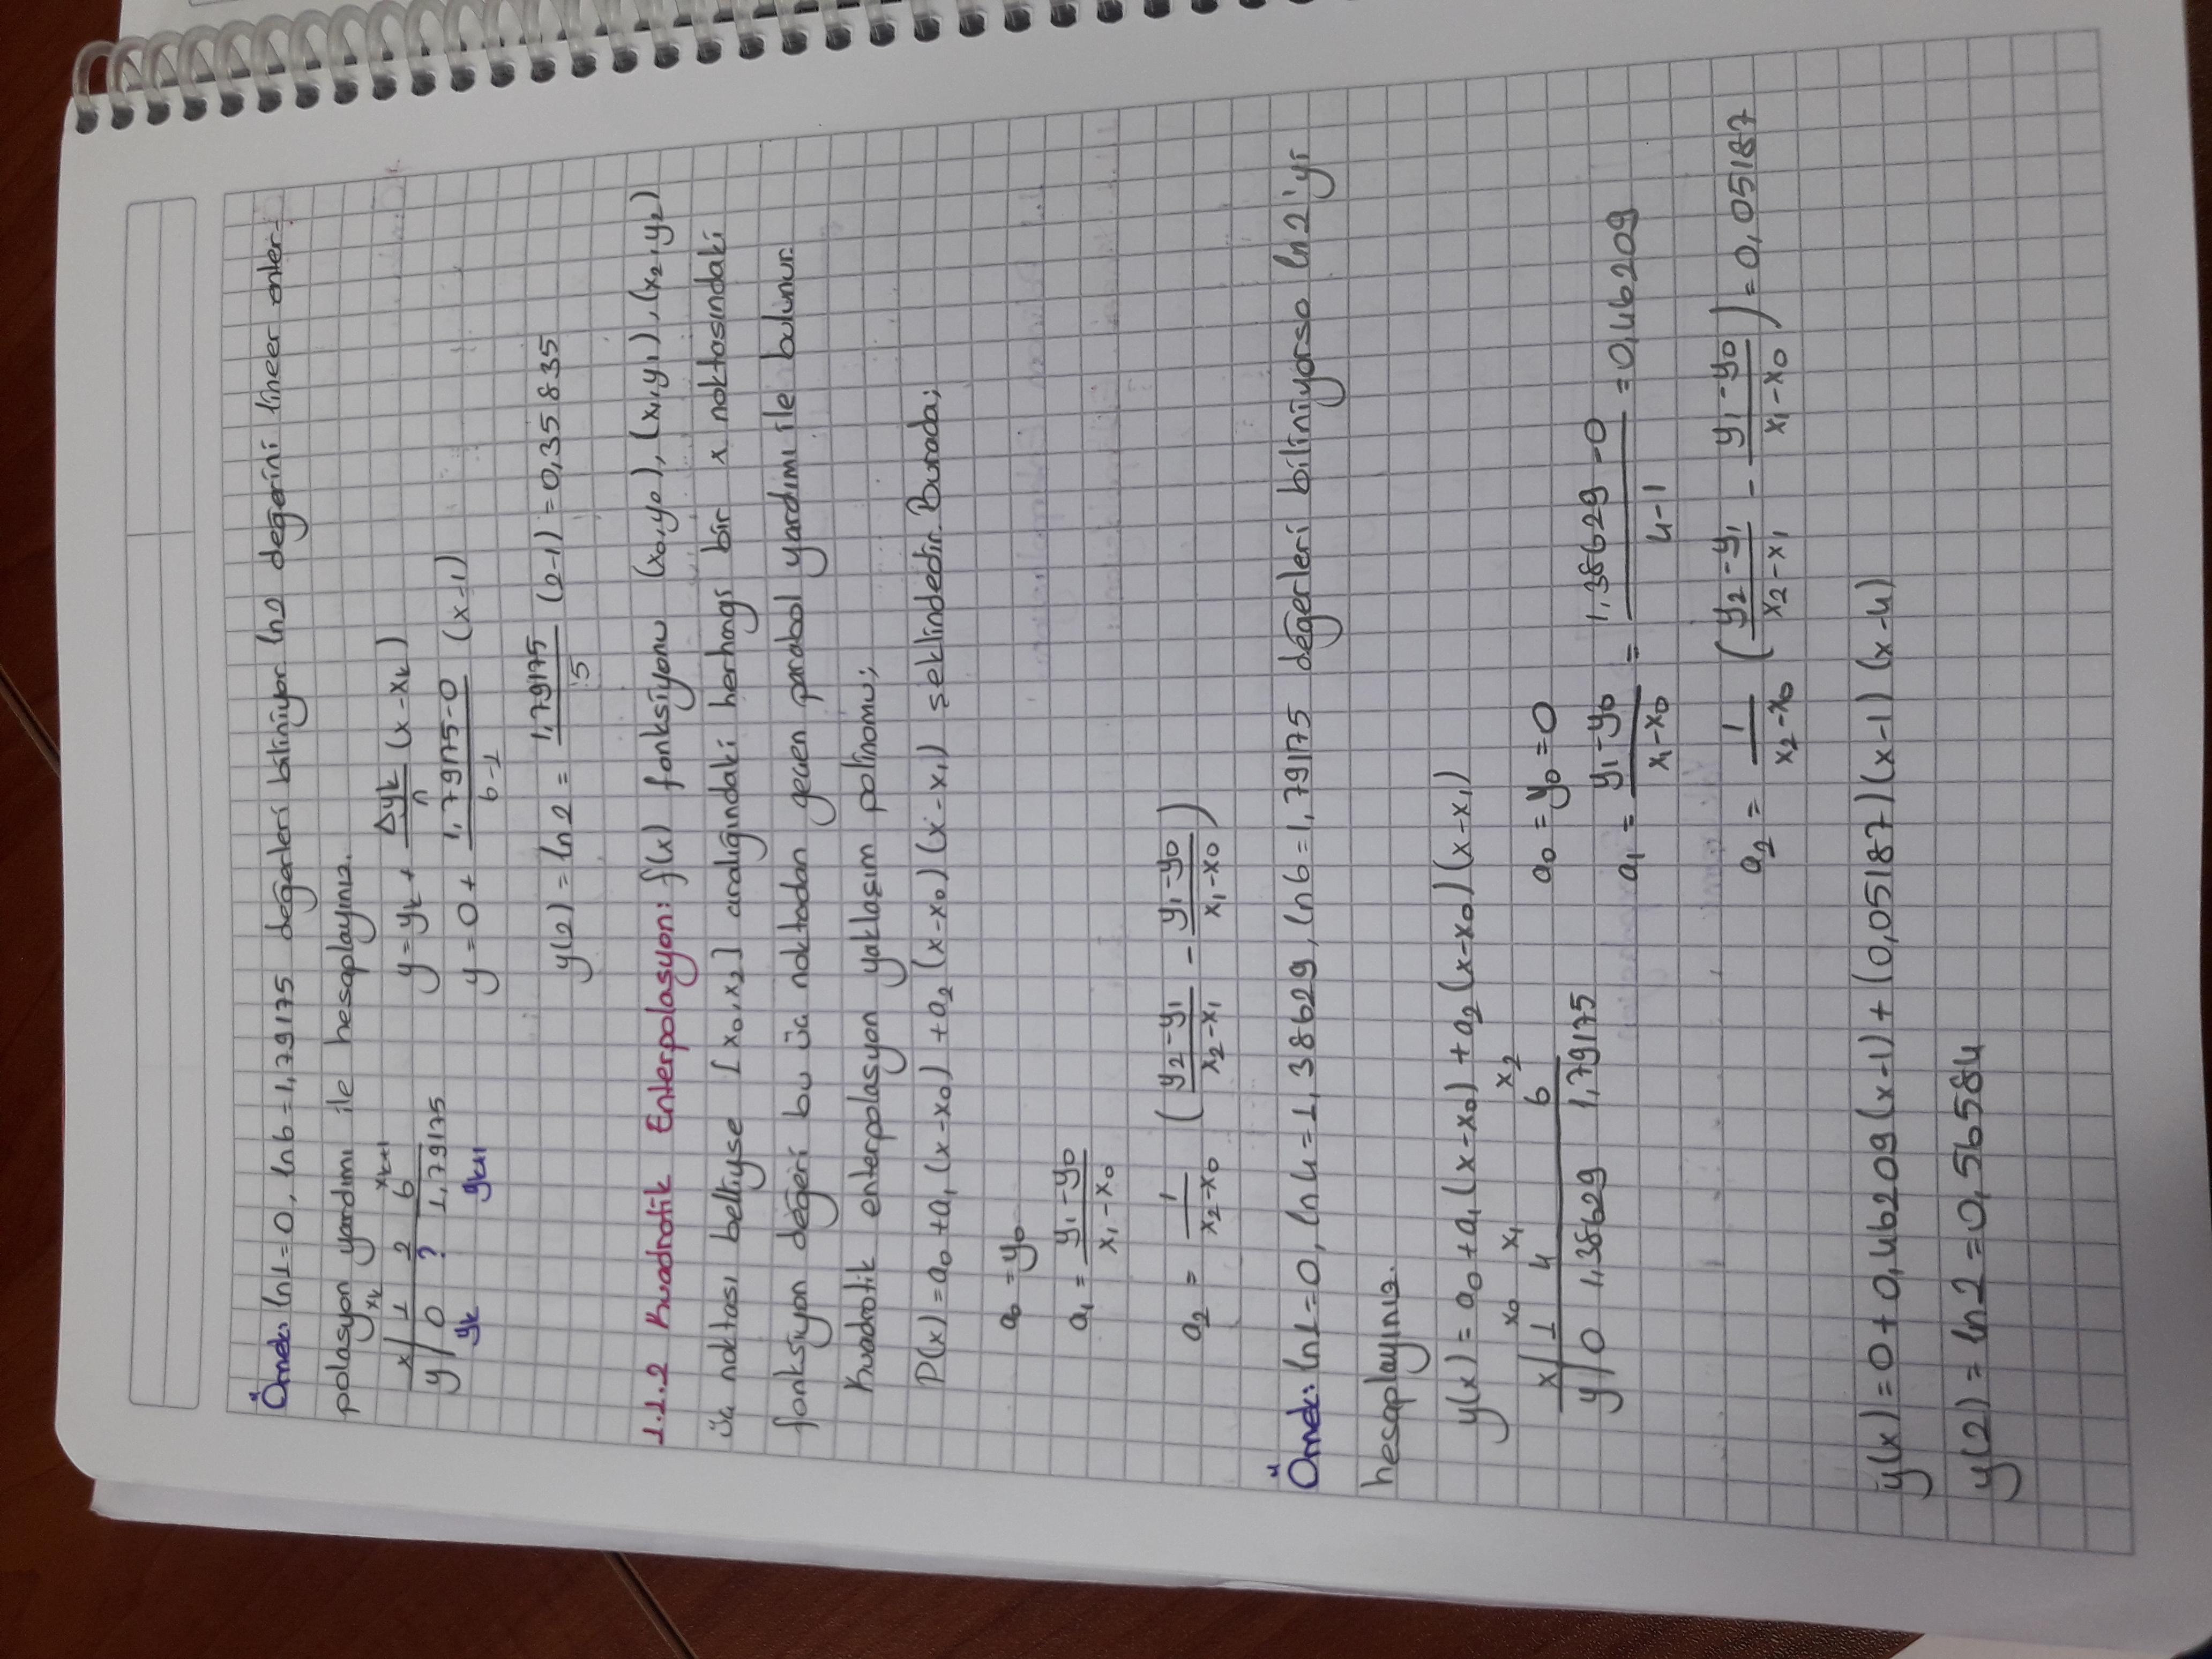 Örnek: ln1=0, ln6=1,79175 değerleri biliniyor ln2 değerini lineer enter-
polasyon yardımı ile hesaplayınız.
xk xk+1
x | 1 2 6
y | 0 ? 1,79175
yk yk+1
y = yk + Δyk/h (x-xk)
y = 0 + (1,79175-0)/(6-1) (x-1)
y(2) = ln2 = 1,79175/5 (2-1) = 0,35835
1.1.2 Kuadratik Enterpolasyon: f(x) fonksiyonu (x0,y0), (x1,y1), (x2,y2)
üç noktası belliyse [x0,x2] aralığındaki herhangi bir x noktasındaki
fonksiyon değeri bu üç noktadan geçen parabol yardımı ile bulunur.
Kuadratik enterpolasyon yaklaşım polinomu;
P(x) = a0 + a1 (x-x0) + a2 (x-x0) (x-x1) şeklindedir. Burada;
a0 = y0
a1 = (y1-y0)/(x1-x0)
a2 = 1/(x2-x0) ( (y2-y1)/(x2-x1) - (y1-y0)/(x1-x0) )
Örnek: ln1=0, ln4=1,38629, ln6=1,79175 değerleri biliniyorsa ln2'yi
hesaplayınız.
y(x) = a0 + a1 (x-x0) + a2 (x-x0) (x-x1)
x0 x1 x2
x | 1 4 6
y | 0 1,38629 1,79175
a0 = y0 = 0
a1 = (y1-y0)/(x1-x0) = (1,38629-0)/(4-1) = 0,46209
a2 = 1/(x2-x0) ( (y2-y1)/(x2-x1) - (y1-y0)/(x1-x0) ) = 0,05187
y(x) = 0 + 0,46209 (x-1) + (0,05187) (x-1) (x-4)
y(2) = ln2 = 0,56584